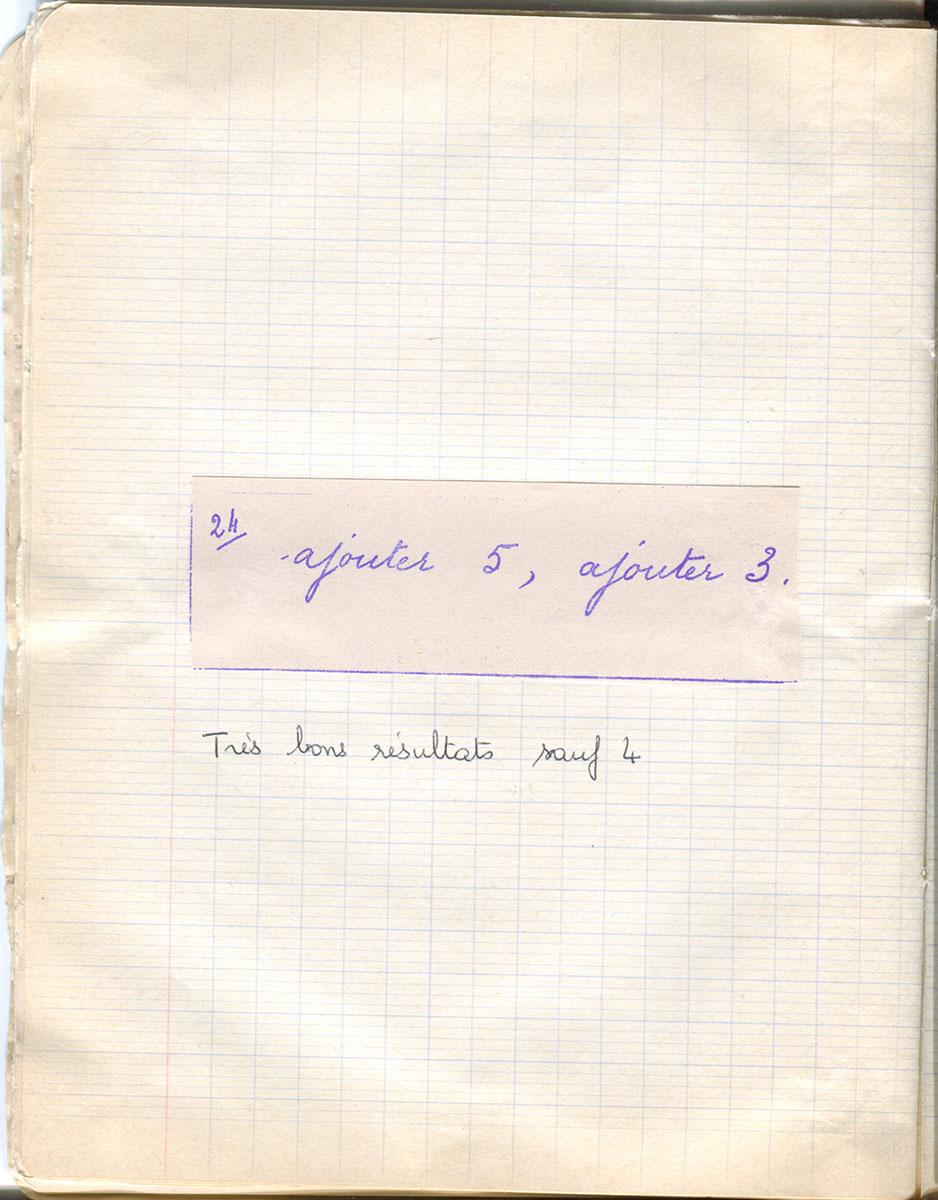 24/
ajouter 5, ajouter 3.
Très bons résultats sauf 4